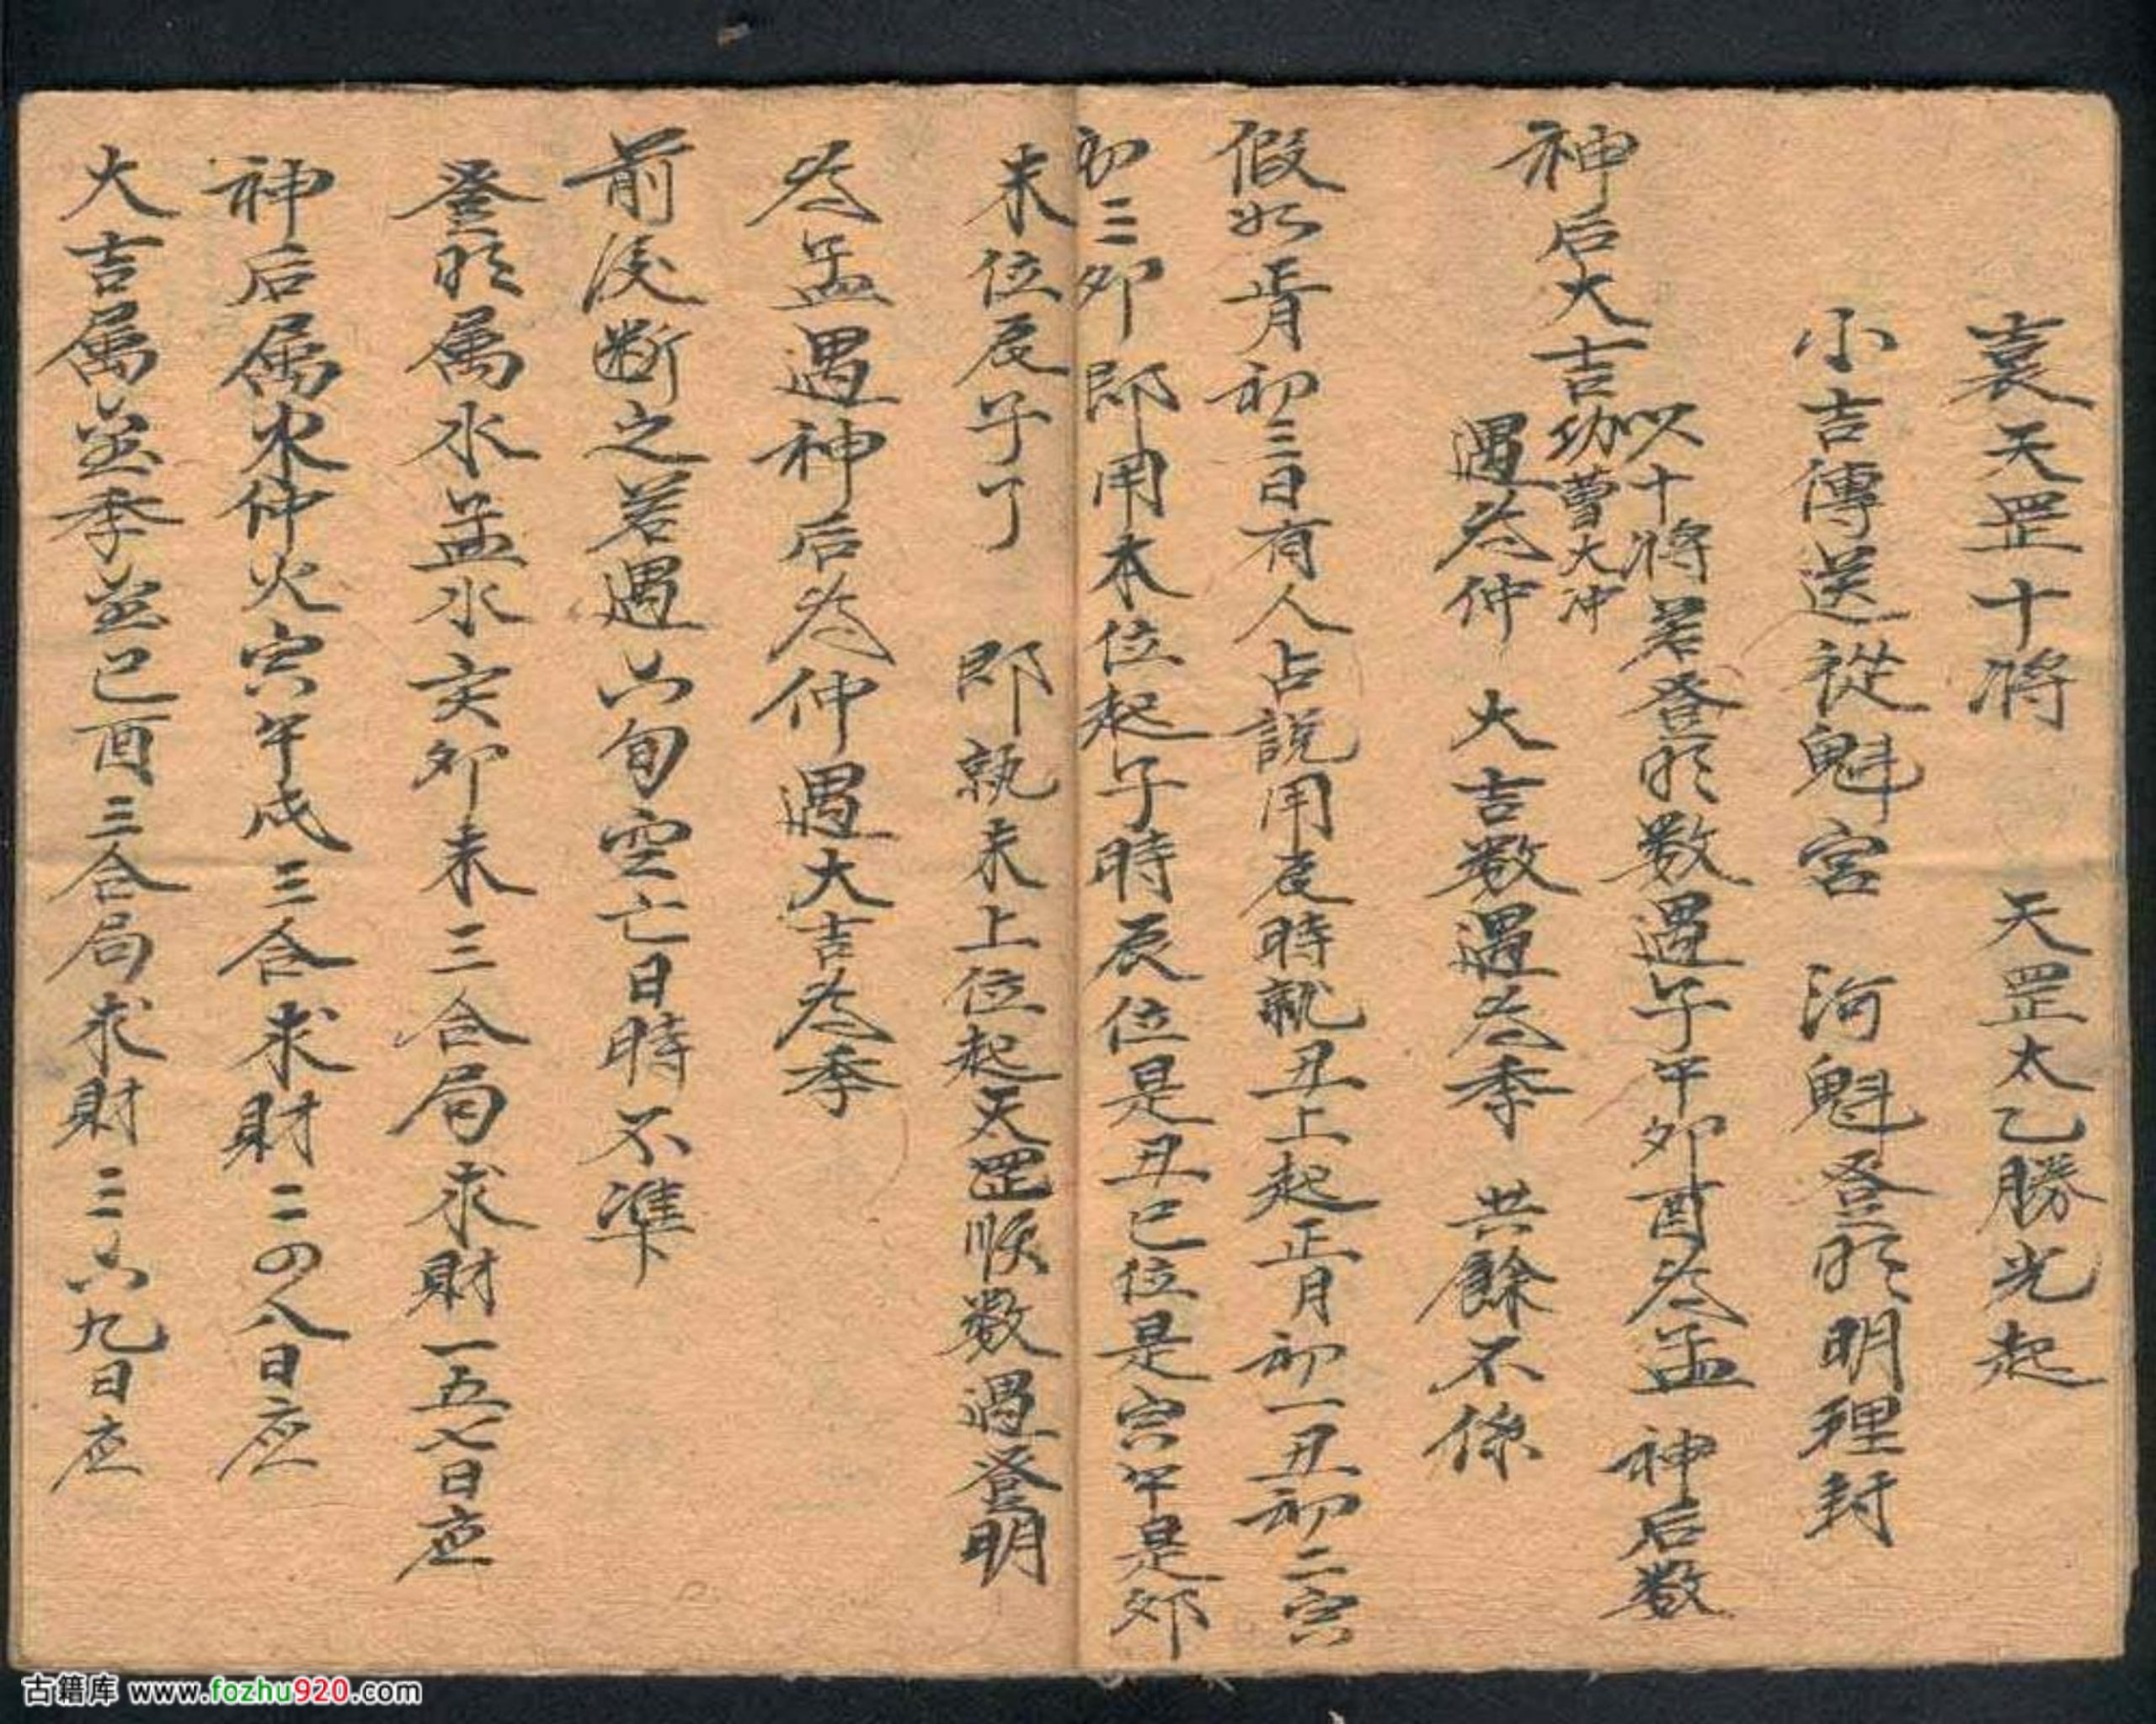 袁天罡十将　天罡太乙勝光起
小吉傳送從魁宮　河魁登明明理封
神后大吉功曹大冲
以十将若登明数遇子午卯酉叁孟　神后数
遇叁仲　大吉数遇叁季　共餘不係
假如正月初三日有人占説用辰時就丑上起正月初一丑初二寅
初三卯即用本位起子時辰位是丑巳位是寅午是卯
未位辰子了　即執未上位起天罡順数遇登明
叁孟遇神后叁仲遇大吉叁季
前後断之若遇六旬空亡日時不準
登明属水孟水亥卯未三合局求財一五七日应
神后属水仲火寅午戌三合求財二四八日应
大吉属金季金巳酉三合局求財三六九日应
古籍库 www.fozhu920.com